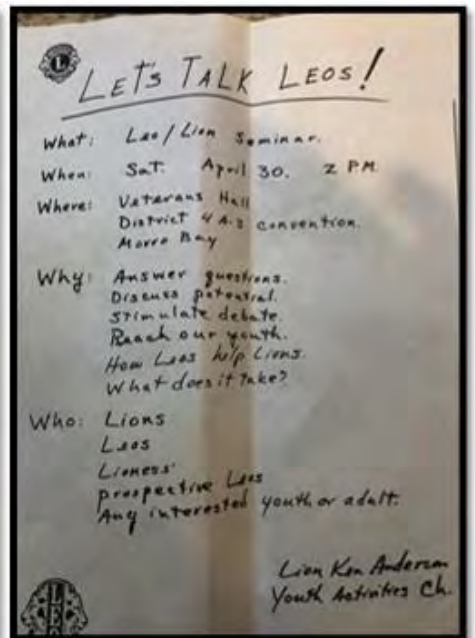 L
LET'S TALK LEOS!
What: Leo/Lion Seminar.
When: Sat. April 30. 2 PM
Where: Veterans Hall
District 4 A-3 convention.
Morro Bay
Why: Answer questions.
Discuss potential.
Stimulate debate.
Reach our youth.
How Leos help Lions.
What does it take?
Who: Lions
Leos
Lioness'
prospective Leos
Any interested youth or adult.
Lion Ken Anderson
Youth Activities Ch.
LEO